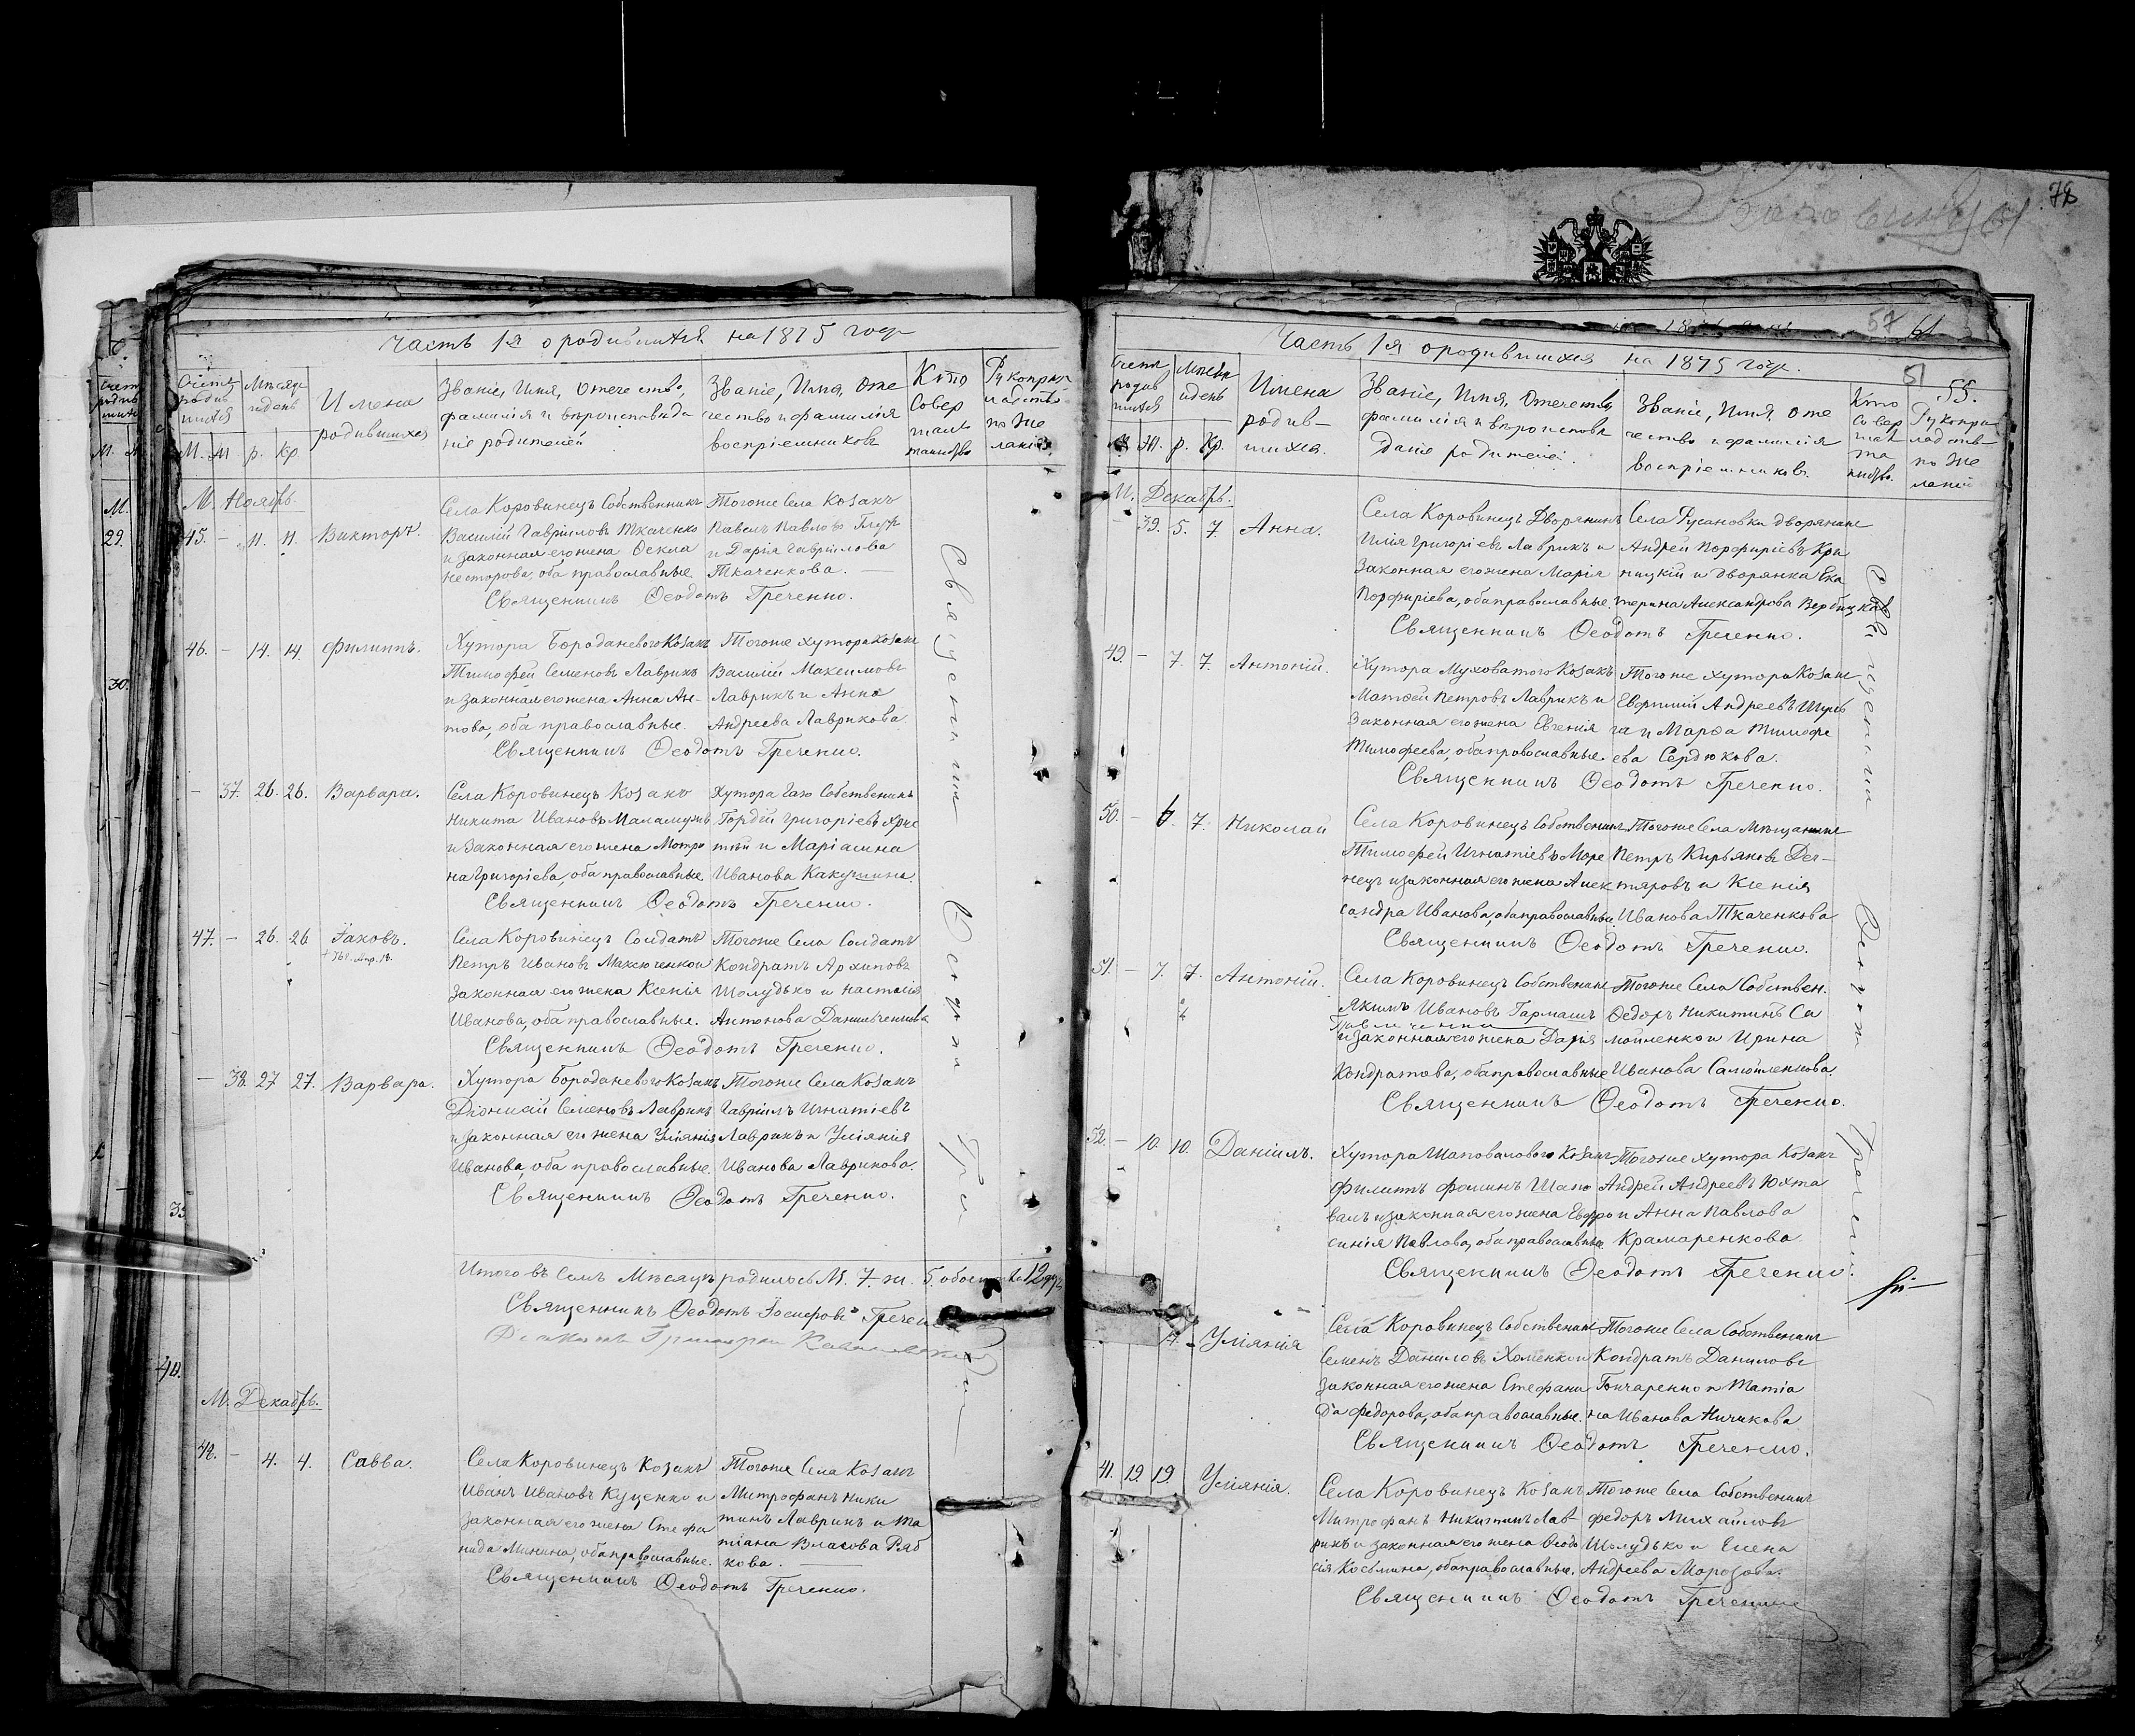 Часть 1я о родившихся на 1875 годъ
Счетъ родившихся
Мѣсяцъ и день
Имена родившихся
Званіе, Имя, Отечество, фамилія и вѣроисповѣданіе родителей
Званіе, Имя, Отечество и фамилія воспріемниковъ
Кто совершалъ таинство
Рукоприкладство по желанію
М. Ж р. Кр
М. Ноябрь.
45. – 11. 11. Викторъ.
Села Коровинецъ Собственникъ
Василій Гавріиловъ Ткаченко
и законная его жена Ѳекла
Несторова, оба православные.
Тогоже Села Козакъ
Павелъ Павловъ
и Дарія Гавріилова
Ткаченкова.
Священникъ Ѳеодотъ Греченко.
46. – 14. 14. Филиппъ.
Хутора Бороданевого Козакъ
Тимофей Семеновъ Лаврикъ
и законная его жена Анна Ан-
това, оба православные.
Тогоже хутора Козакъ
Василій Максимовъ
Лаврикъ и Анна
Андреева Лаврикова.
Священникъ Ѳеодотъ Греченко.
– 37. 26. 26. Варвара.
Села Коровинецъ Козакъ
Никита Ивановъ Маламужъ
и законная его жена Мотро
на Григоріева, оба православные
Хутора Гаю Собственникъ
Гордій Григоріевъ
и Маріамна
Иванова
Священникъ Ѳеодотъ Греченко.
47. – 26. 26 Іаковъ.
Села Коровинецъ Солдатъ
Петръ Ивановъ Максюченко и
законная его жена Ксенія
Иванова, оба православные.
Тогоже Села Солдатъ
Кондратъ Архиповъ
Шолудько и Настасія
Антонова Данильченкова
Священникъ Ѳеодотъ Греченко.
– 38. 27 27. Варвара.
Хутора Бороданевого Козакъ
Діонисій Семеновъ Лаврикъ
и законная его жена Уліянія
Иванова, оба православные.
Тогоже Села Козакъ
Гавріилъ Игнатіевъ
Лаврикъ и Уліянія
Иванова Лаврикова.
Священникъ Ѳеодотъ Греченко.
Итого въ семъ Мѣсяцѣ родилось М. 7. ж. 5. обоего 12
Священникъ Ѳеодотъ Іосифовъ Греченко
М. Декабрь.
48. – 4. 4. Савва.
Села Коровинецъ Козакъ
Иванъ Ивановъ Куценко и
законная его жена Стефа
нида Минина, оба православные.
Тогоже Села Козакъ
Митрофанъ Ники
тинъ Лаврикъ и Та
тіана Власова Ряб
кова.
Священникъ Ѳеодотъ Греченко.
Священникъ Ѳеодотъ
78
57 61
51
55.
Часть 1я о родившихся на 1875 годъ.
Счетъ родившихся
Мѣсяцъ и день
Имена родив-
шихся.
Званіе, Имя, Отечество,
фамилія и вѣроисповѣ
даніе родителей.
Званіе, Имя, Оте
чество и фамилія
воспріемниковъ.
Кто совершалъ таинство.
Рукоприкладство по желанію
М. Ж. р. Кр.
М. Декабрь.
– 39. 5. 7 Анна.
Села Коровинецъ Дворянинъ
Илія Григоріевъ Лаврикъ и
законная его жена Марія
Порфиріева, оба православные.
Села Русановки дворянинъ
Андрей Порфиріевъ Кри
ницкій и дворянка Ека
терина Александрова Вербицкая
Священникъ Ѳеодотъ Греченко.
49. – 7. 7. Антоній.
Хутора Муховатого Козакъ
Матѳей Петровъ Лаврикъ и
законная его жена Евгенія
Тимофеева, оба православные.
Тогоже хутора Козакъ
Евфимій Андреевъ Шуль
га и Марѳа Тимофе
ева Сердюкова.
Священникъ Ѳеодотъ Греченко.
50. – 6. 7. Николай
Села Коровинецъ Собственникъ
Тимофей Игнатіевъ Море
нецъ и законная его жена Алек
сандра Иванова, оба православные
Тогоже Села Мѣщанинъ
Петръ Кирьяковъ Дег-
тяровъ и Ксенія
Иванова Ткаченкова
Священникъ Ѳеодотъ Греченко.
51. – 7. 7. Антоній.
Села Коровинецъ Собственникъ
Якимъ Ивановъ Гармашъ
и законная его жена Дарія
Кондратова, оба православные
Тогоже Села Собствен.
Ѳедоръ Никитинъ Са
мойленко и Ирина
Иванова Самойленкова.
Священникъ Ѳеодотъ Греченко.
52. – 10. 10. Даніилъ.
Хутора Шаповалового Козакъ
Филиппъ Фоминъ Шапо
валъ и законная его жена Евфро
синія Павлова, оба православные
Тогоже хутора Козакъ
Андрей Андреевъ Юхта
и Анна Павлова
Крамаренкова
Священникъ Ѳеодотъ Греченко.
Уліянія
Села Коровинецъ Собственникъ
Семенъ Даниловъ Хоменко и
законная его жена Стефани
да Федорова, оба православные.
Тогоже Села Собственникъ
Кондратъ Даниловъ
Гончаренко и Татіа
на Иванова Ничикова
Священникъ Ѳеодотъ Греченко.
41. 19. 19. Уліянія.
Села Коровинецъ Козакъ
Митрофанъ Никитинъ Лав
рикъ и законная его жена Ѳеодо
сія Косьмина, оба православные.
Тогоже Села Собственникъ
Федоръ Михайловъ
Шолудько и Елена
Андреева Морозова.
Священникъ Ѳеодотъ Греченко
Священникъ Ѳеодотъ Греченко